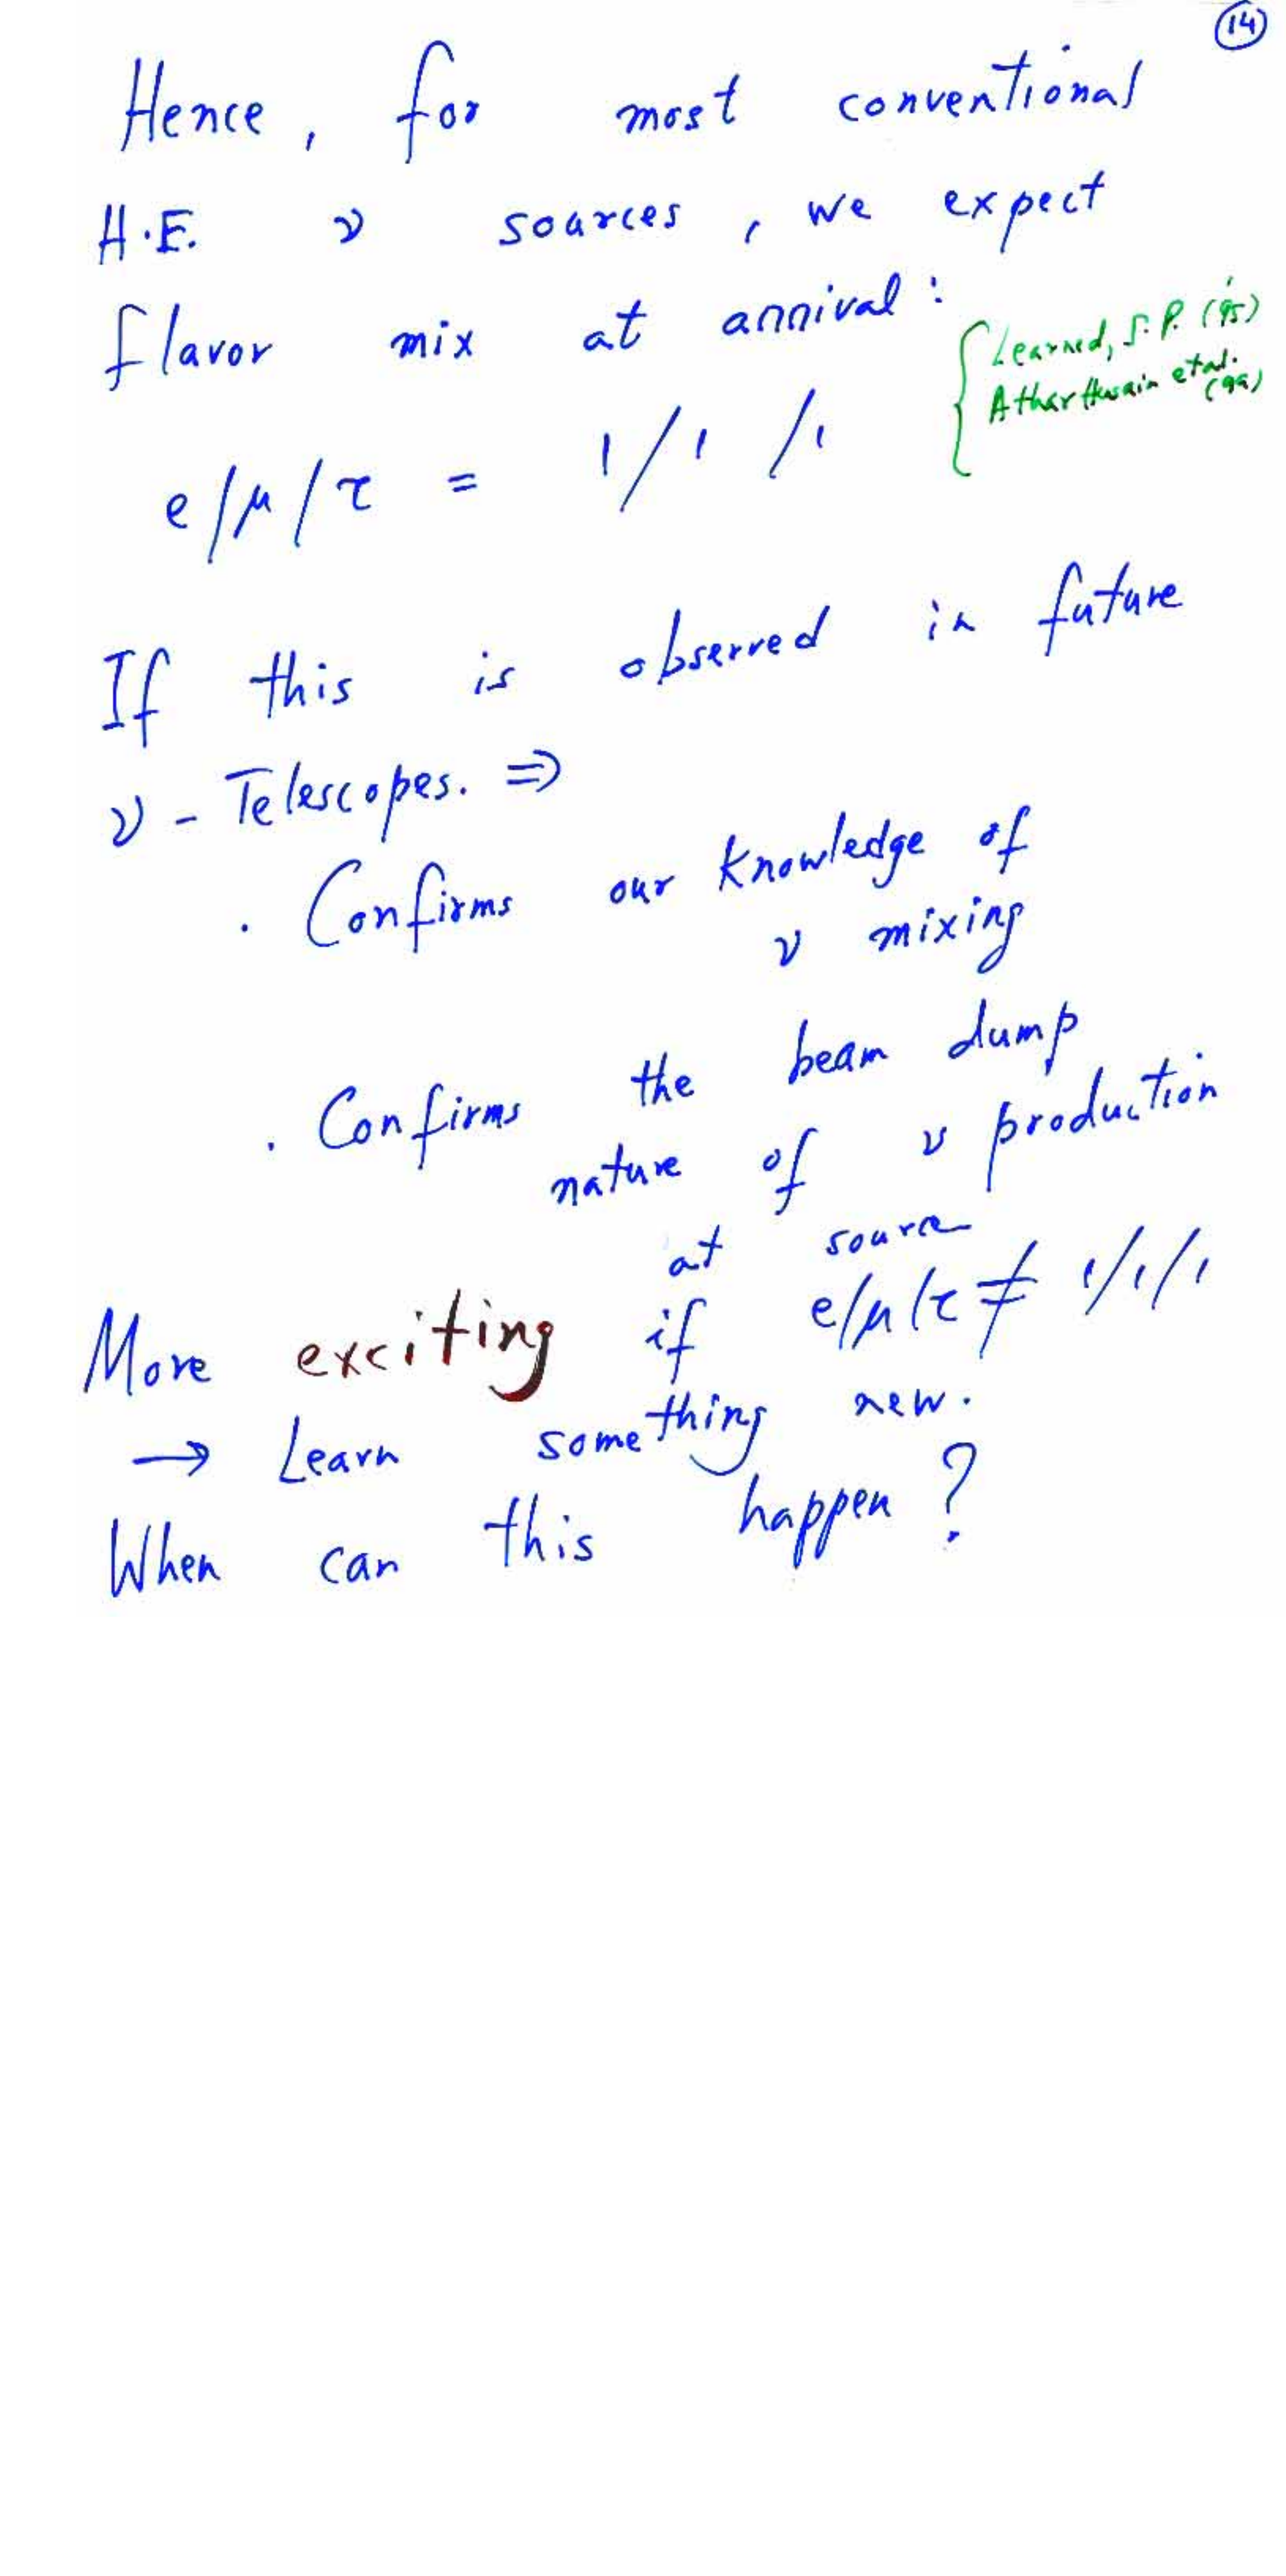 14
Hence, for most conventional
H.E. ν sources, we expect
flavor mix at arrival:
Learned, S.P. ('95)
Athar Husain et al.
(99)
e/μ/τ = 1/1/1
If this is observed in future
ν - Telescopes. ⇒
. Confirms our knowledge of
ν mixing
. Confirms the beam dump
nature of ν production
at source
More exciting if e/μ/τ ≠ 1/1/1
→ Learn something new.
When can this happen?